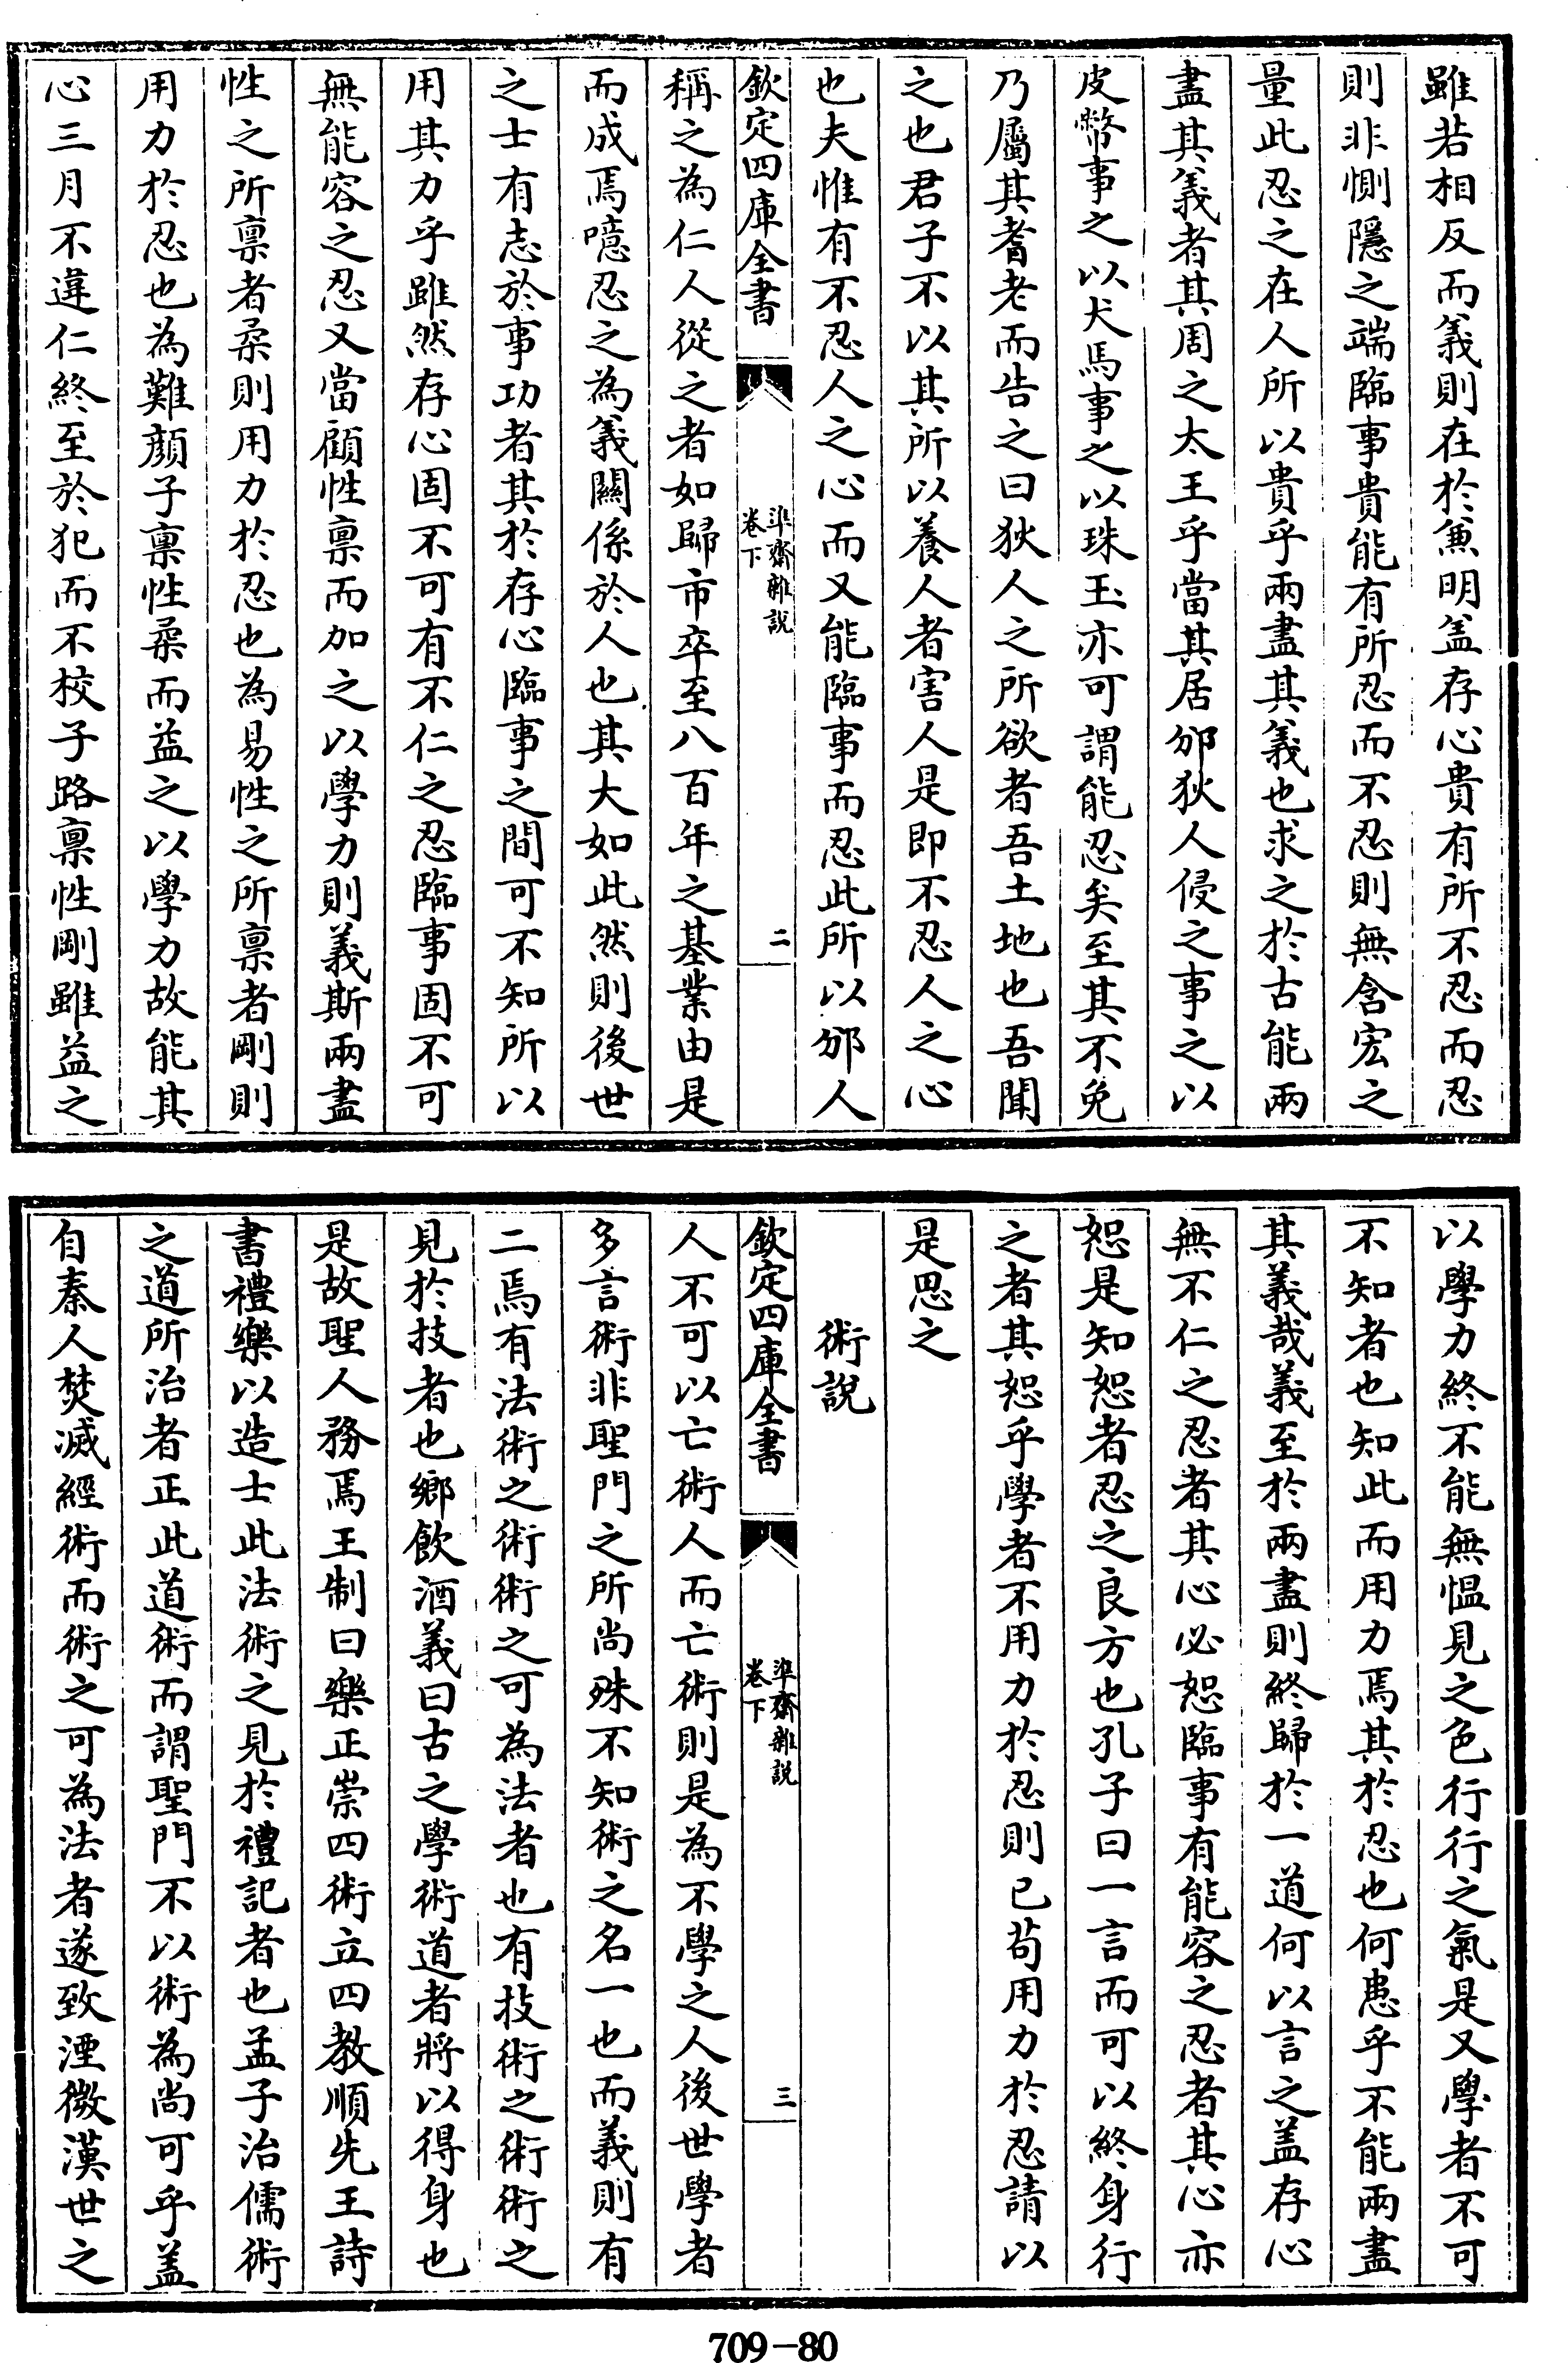 雖若相反而義則在於兼明盖存心貴有所不忍而忍
則非惻隱之端臨事貴能有所忍而不忍則無含宏之
量此忍之在人所以貴乎兩盡其義也求之於古能兩
盡其義者其周之太王乎當其居邠狄人侵之事之以
皮幣事之以犬馬事之以珠玉亦可謂能忍矣至其不免
乃屬其耆老而告之曰狄人之所欲者吾土地也吾聞
之也君子不以其所以養人者害人是即不忍人之心
也夫惟有不忍人之心而又能臨事而忍此所以邠人
欽定四庫全書
準齋雜說
卷下
二
稱之為仁人從之者如歸市卒至八百年之基業由是
而成焉噫忍之為義關係於人也其大如此然則後世
之士有志於事功者其於存心臨事之間可不知所以
用其力乎雖然存心固不可有不仁之忍臨事固不可
無能容之忍又當顧性禀而加之以學力則義斯兩盡
性之所禀者柔則用力於忍也為易性之所禀者剛則
用力於忍也為難顔子禀性柔而益之以學力故能其
心三月不違仁終至於犯而不校子路禀性剛雖益之
以學力終不能無愠見之色行行之氣是又學者不可
不知者也知此而用力焉其於忍也何患乎不能兩盡
其義哉義至於兩盡則終歸於一道何以言之盖存心
無不仁之忍者其心必恕臨事有能容之忍者其心亦
恕是知恕者忍之良方也孔子曰一言而可以終身行
之者其恕乎學者不用力於忍則已苟用力於忍請以
是思之
術說
欽定四庫全書
準齋雜說
卷下
三
人不可以亡術人而亡術則是為不學之人後世學者
多言術非聖門之所尚殊不知術之名一也而義則有
二焉有法術之術術之可為法者也有技術之術術之
見於技者也鄉飲酒義曰古之學術道者將以得身也
是故聖人務焉王制曰樂正崇四術立四教順先王詩
書禮樂以造士此法術之見於禮記者也孟子治儒術
之道所治者正此道術而謂聖門不以術為尚可乎盖
自秦人焚滅經術而術之可為法者遂致湮微漢世之
709-80